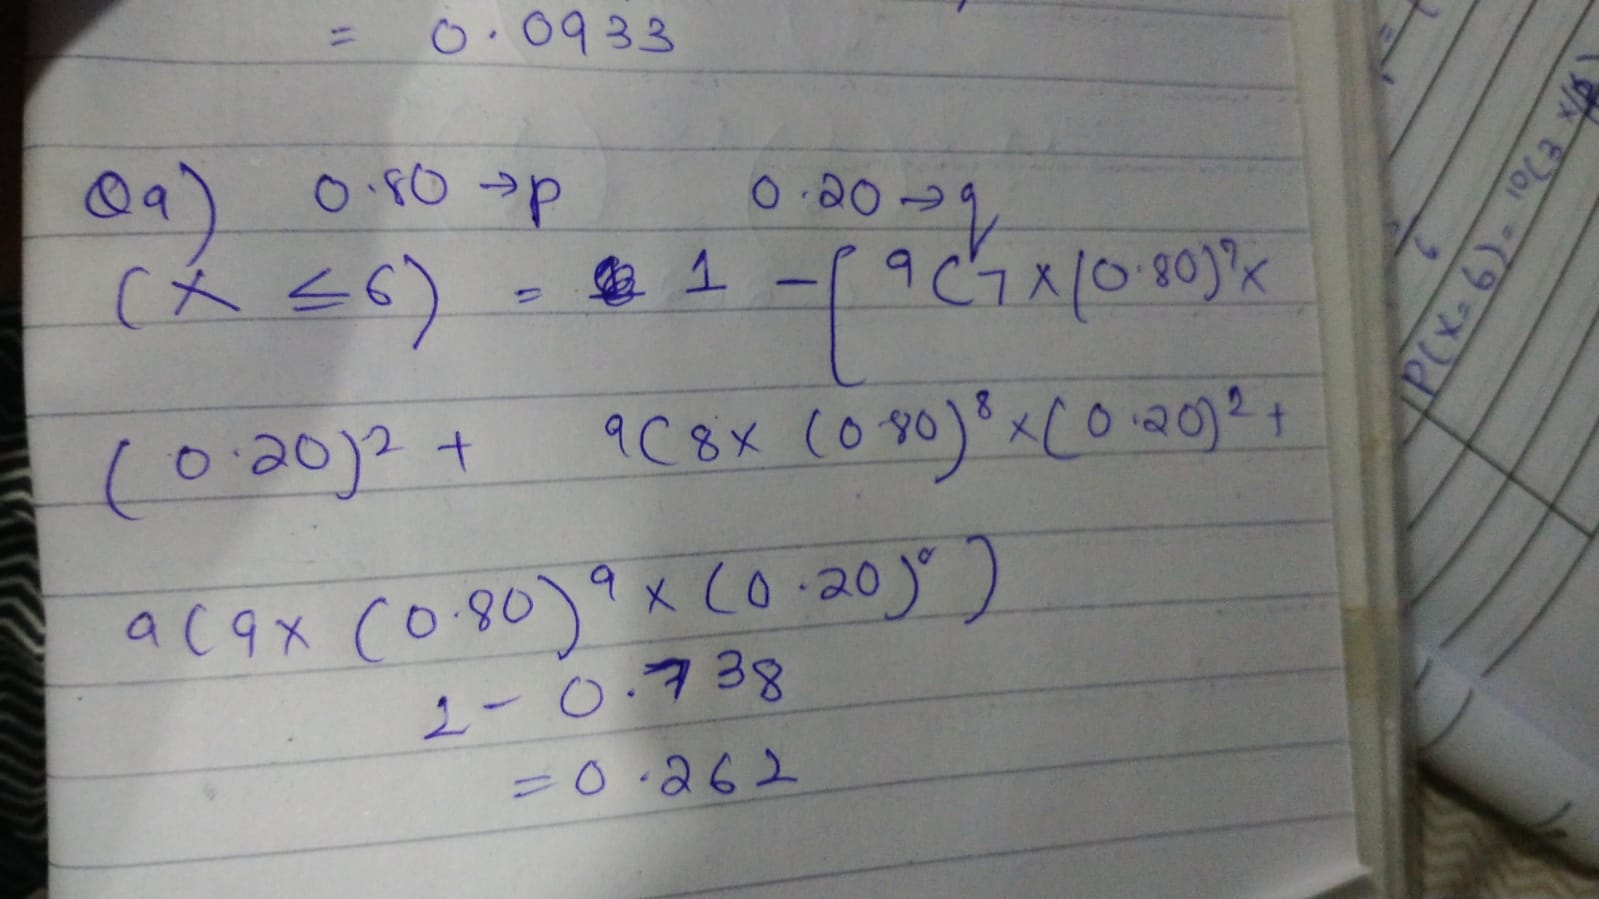 = 0.0933
Q9) 0.80 → p 0.20 → q
(X ≤ 6) = 1 - [ 9C7 x (0.80)⁷ x
(0.20)² + 9C8 x (0.80)⁸ x (0.20)² +
9C9 x (0.80)⁹ x (0.20)⁰ )
1 - 0.738
= 0.262
P(X = 6) = 10C3 x
6